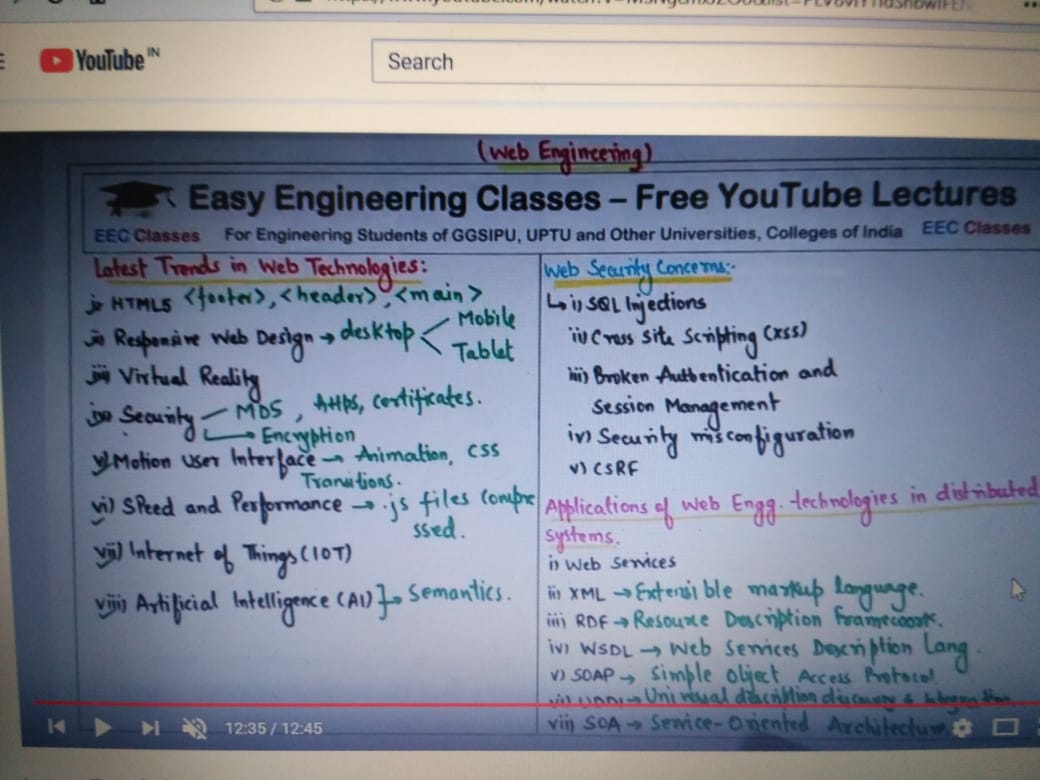 YouTube IN
Search
(Web Engineering)
Easy Engineering Classes – Free YouTube Lectures
EEC Classes For Engineering Students of GGSIPU, UPTU and Other Universities, Colleges of India EEC Classes
Latest Trends in Web Technologies:
i) HTML5 <footer>, <header>, <main>
ii) Responsive Web Design → desktop
Mobile
Tablet
iii) Virtual Reality
iv) Security MD5, certificates.
Encryption
v) Motion User Interface → Animation, CSS
Transitions.
vi) Speed and Performance → .js files compre
ssed.
vii) Internet of Things (IOT)
viii) Artificial Intelligence (AI)} → Semantics.
Web Security Concerns:-
↳ i) SQL Injections
ii) Cross Site Scripting (XSS)
iii) Broken Authentication and
Session Management
iv) Security misconfiguration
v) CSRF
Applications of Web Engg. technologies in distributed
systems.
i) Web Services
ii) XML → Extensible markup language.
iii) RDF → Resource Description Framework.
iv) WSDL → Web Services Description Lang.
v) SOAP → Simple Object Access Protocol
vi) UDDI → Universal description discovery & Integration
vii) SOA → Service-Oriented Architecture.
12:35 / 12:45